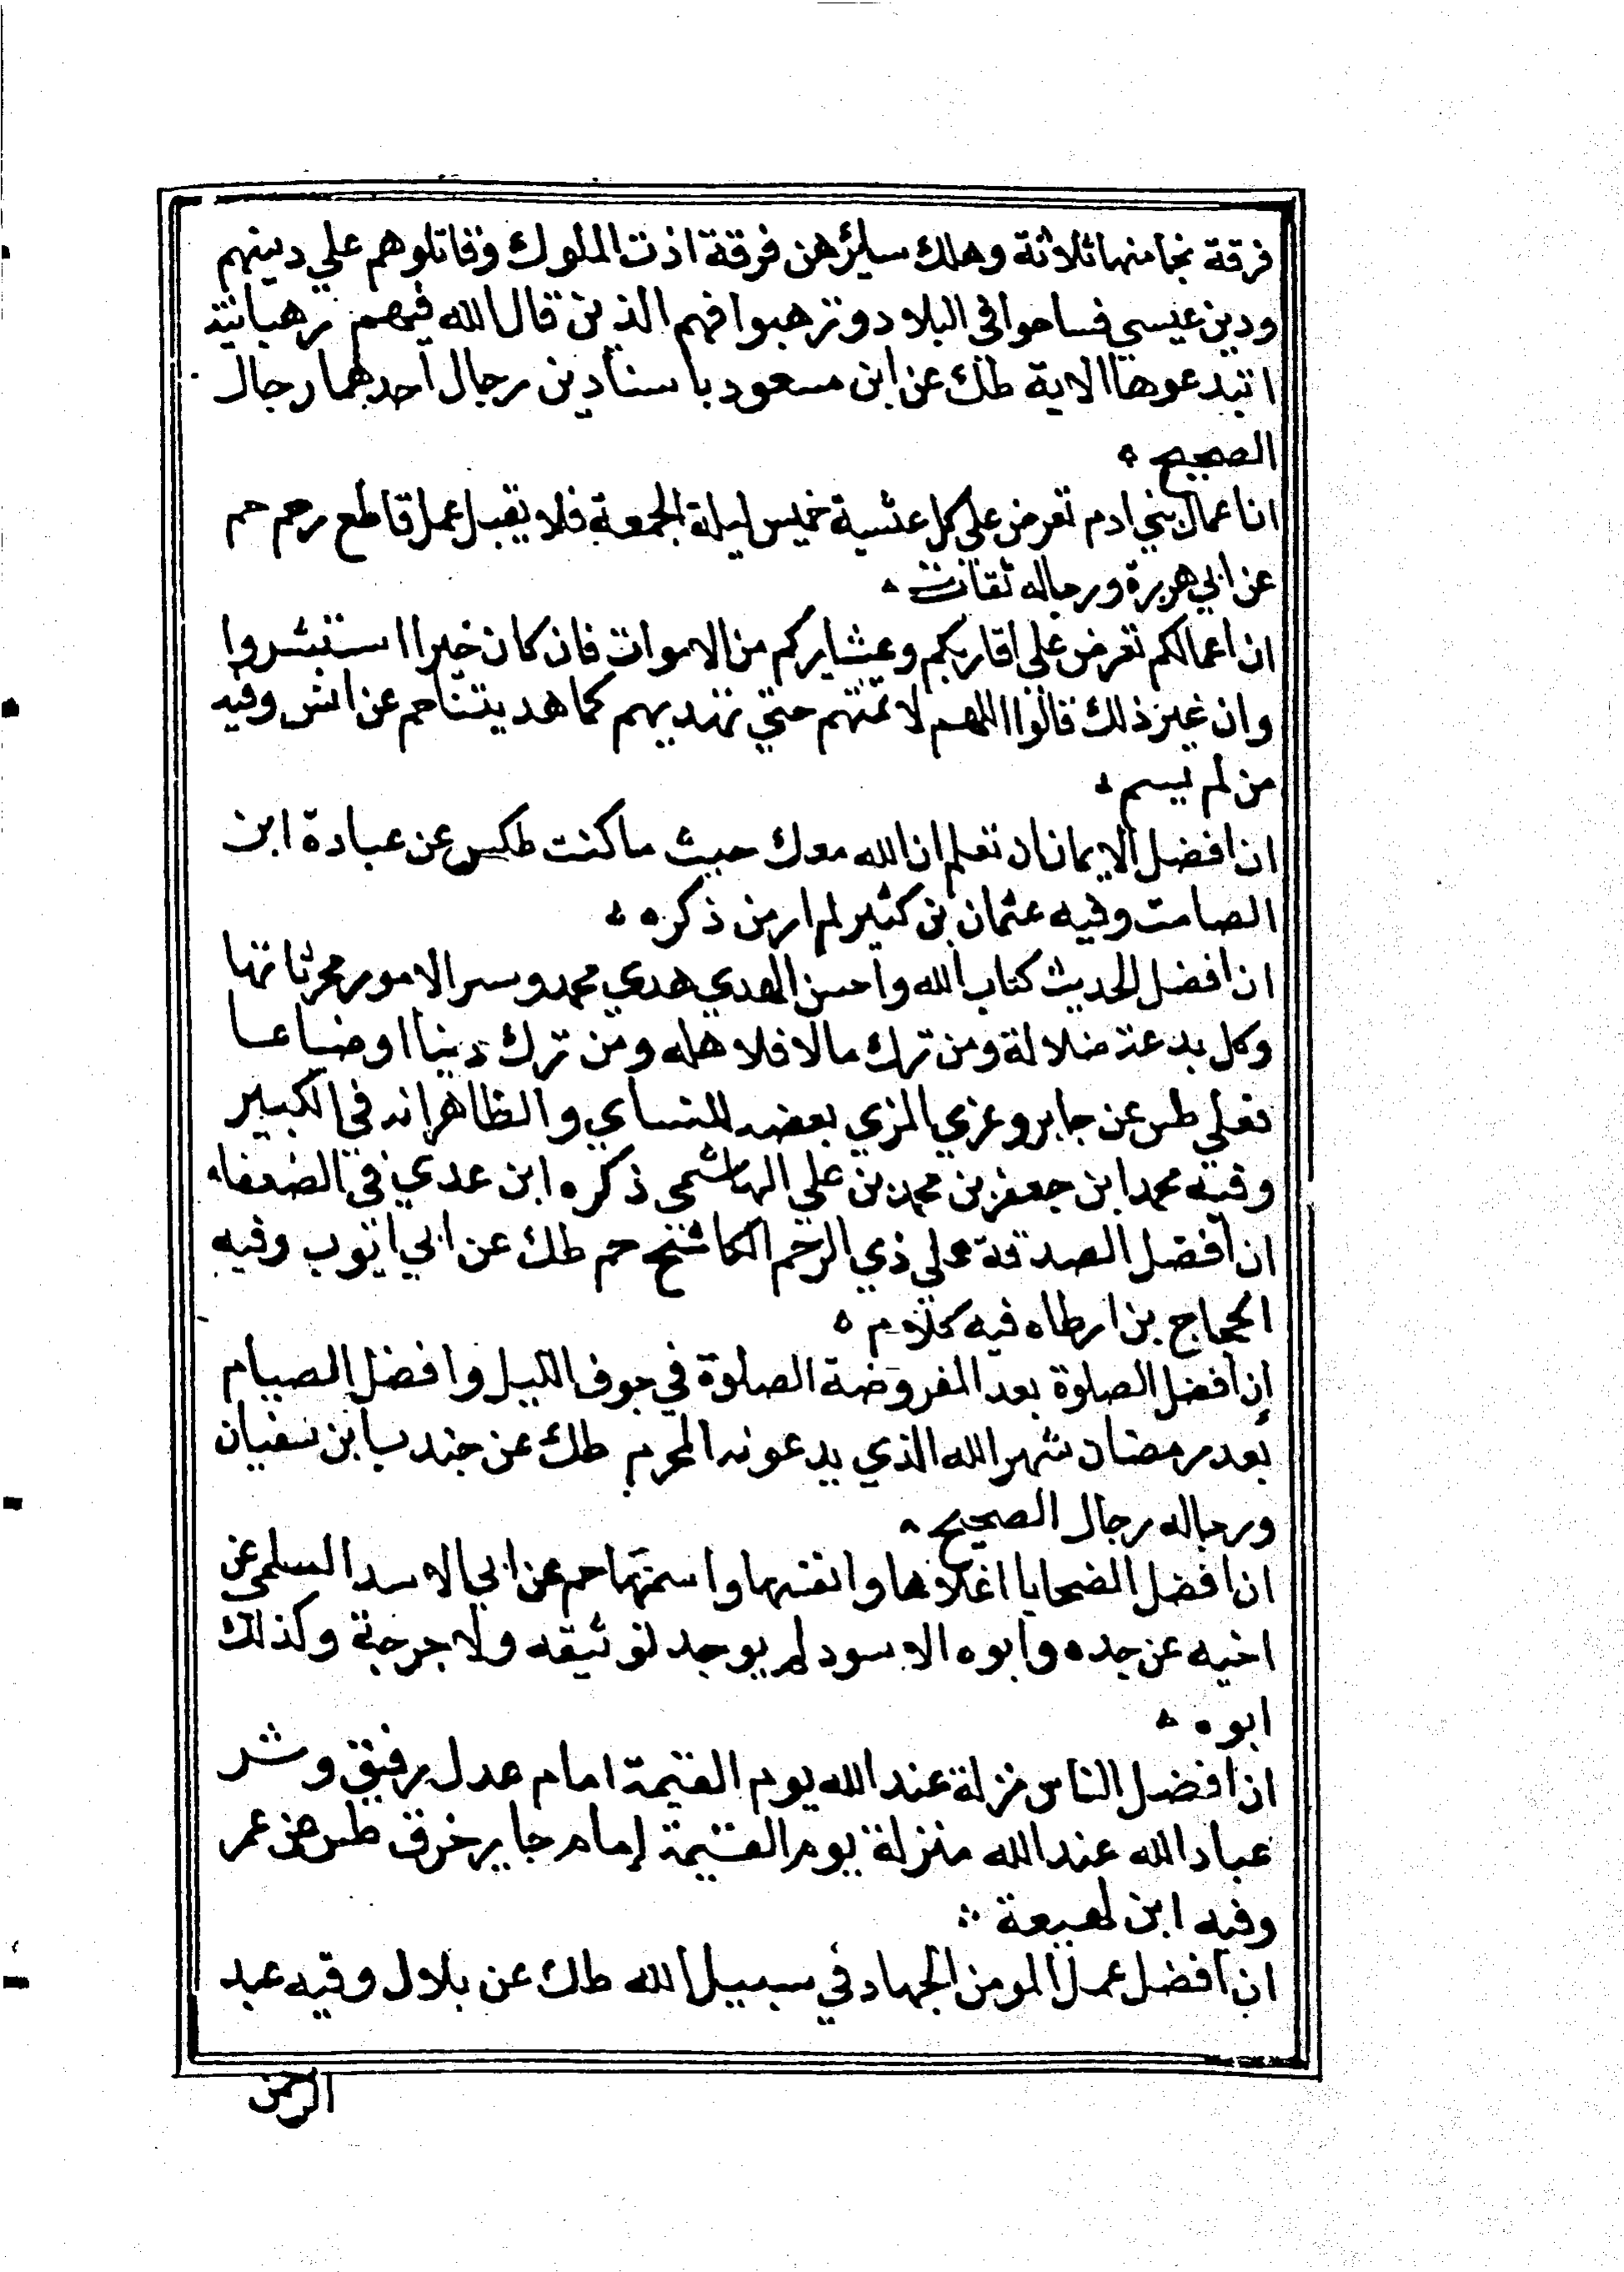 فرقة نجا منها ثلاثة وهلك سايرهن فرقة اذت الملوك وقاتلوهم علي دينهم
ودين عيسي فساحوا في البلاد وترهبوا فهم الذين قال الله فيهم رهبانية
ابتدعوها الاية طك عن ابن مسعود باسنادين رجال احدهما رجال
الصحيح
ان اعمال بني ادم تعرض علي كل عشية خميس ليلة الجمعة فلا يقبل عمل قاطع رحم حم
عن ابي هريرة ورجاله ثقات
ان اعمالكم تعرض علي اقاربكم وعشايركم من الاموات فان كان خيرا استبشروا
وان غير ذلك قالوا اللهم لا تمتهم حتي تهديهم كما هديتنا حم عن انس وفيه
من لم يسم
ان افضل الايمان ان تعلم ان الله معك حيث ما كنت طكس عن عبادة ابن
الصامت وفيه عثمان بن كثير لم ار من ذكره
ان افضل الحديث كتاب الله واحسن الهدي هدي محمد وسر الامور محدثاتها
وكل بدعة ضلالة ومن ترك مالا فلاهله ومن ترك دينا او ضياعا
فعلي طس عن جابر وعزي المزي بعضه للنساي والظاهر انه في الكبير
وفيه محمد ابن جعفر بن محمد بن علي الهاشمي ذكره ابن عدي في الضعفاء
ان افضل الصدقة علي ذي الرحم الكاشح حم طك عن ابي ايوب وفيه
الحجاج بن ارطاه فيه كلام
إن افضل الصلوة بعد المفروضة الصلوة في جوف الليل وافضل الصيام
بعد رمضان شهر الله الذي يدعونه المحرم طك عن جندب ابن سفيان
ورجاله رجال الصحيح
ان افضل الضحايا اغلاها وانفسها واسمنها حم عن ابي الاسد السلمي عن
اخيه عن جده وابوه الاسود لم يوجد توثيقه ولا جرحة وكذلك
ابوه
ان افضل الناس منزلة عند الله يوم القيمة امام عدل رفيق وشر
عباد الله عند الله منزلة يوم القيمة إمام جاير خرق طس عن عمر
وفيه ابن لهيعة
ان افضل عمل المومن الجهاد في سبيل الله طك عن بلال وفيه عبد
الرحمن